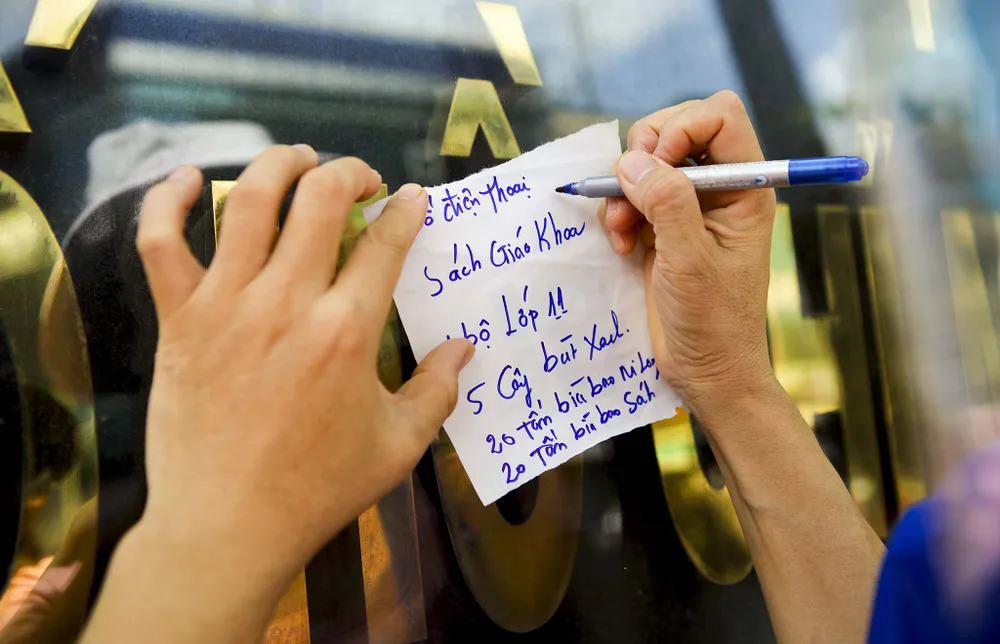 điện thoại
Sách Giáo Khoa
bộ Lớp 11
5 Cây bút xanh.
20 Tấm bìa bao ni Lon
20 Tấm bìa bao Sách